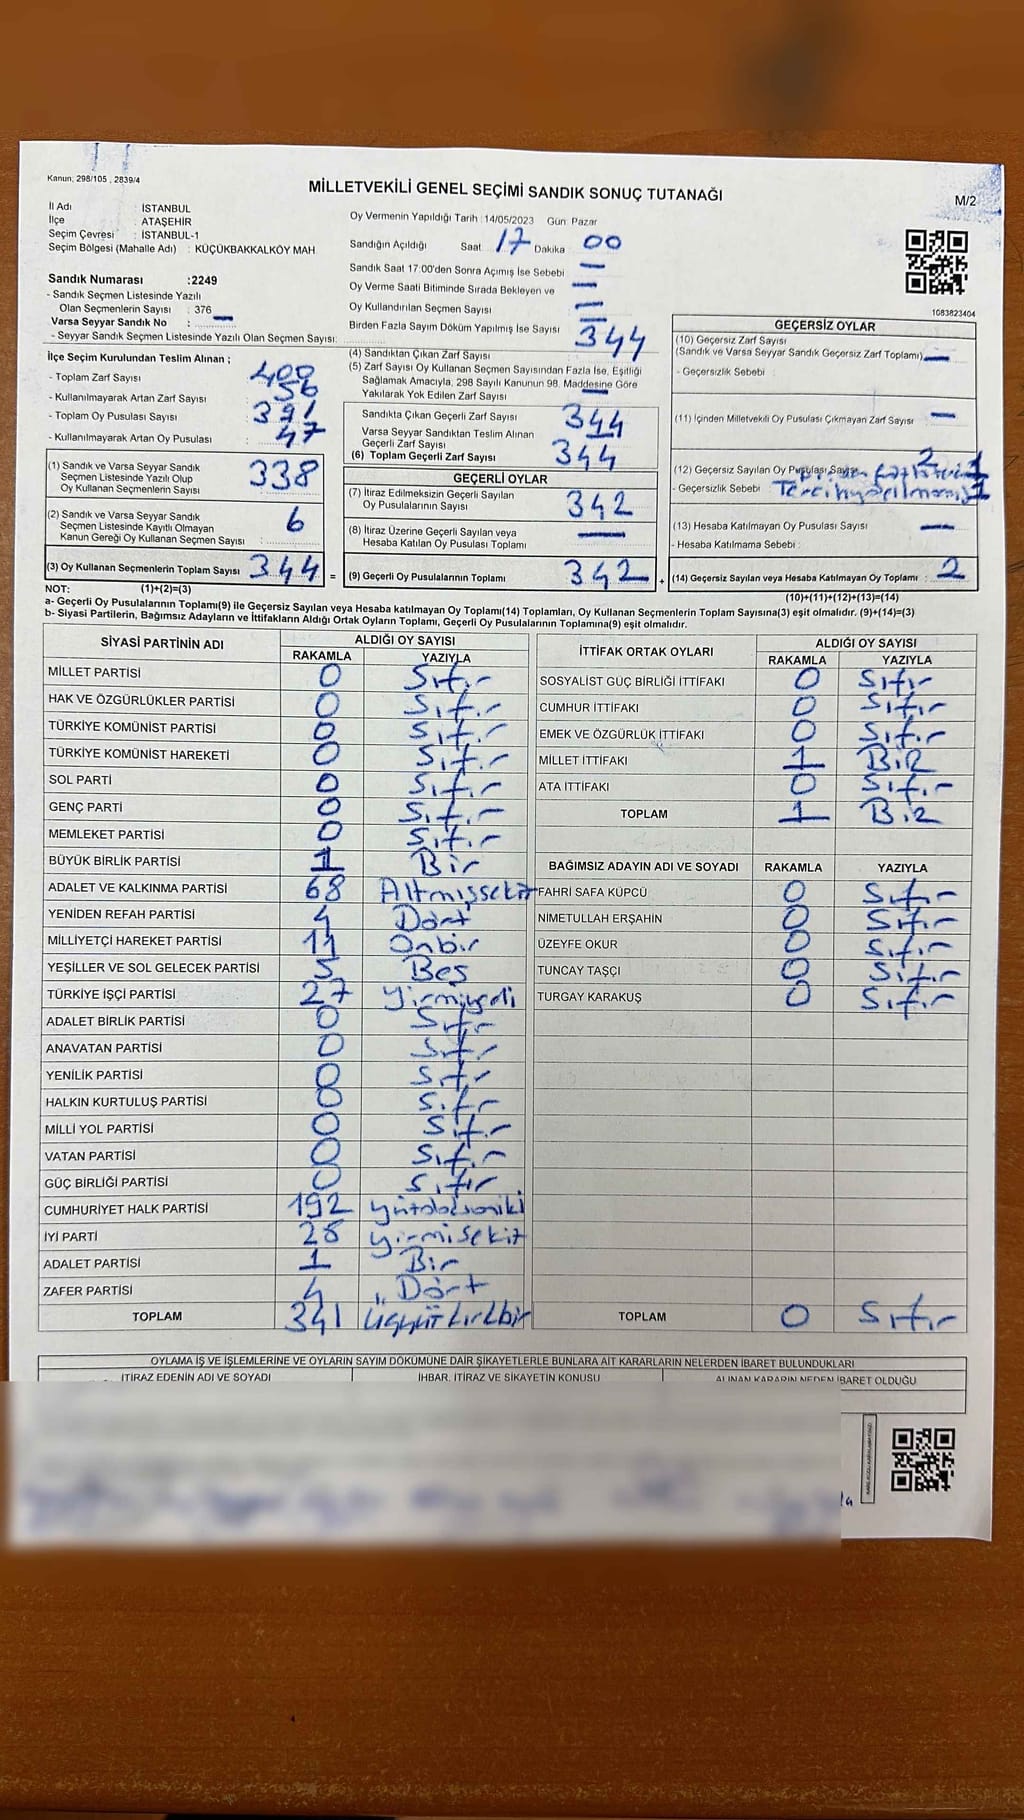 Kanun; 298/105 , 2839/4
MİLLETVEKİLİ GENEL SEÇİMİ SANDIK SONUÇ TUTANAĞI
M/2
İl Adı : İSTANBUL
İlçe : ATAŞEHİR
Seçim Çevresi : İSTANBUL-1
Seçim Bölgesi (Mahalle Adı) : KÜÇÜKBAKKALKÖY MAH
Sandık Numarası :2249
- Sandık Seçmen Listesinde Yazılı
Olan Seçmenlerin Sayısı : 376
Varsa Seyyar Sandık No : —
- Seyyar Sandık Seçmen Listesinde Yazılı Olan Seçmen Sayısı:
Oy Vermenin Yapıldığı Tarih :14/05/2023 Gün: Pazar
Sandığın Açıldığı Saat 17 Dakika 00
Sandık Saat 17:00'den Sonra Açımış İse Sebebi —
Oy Verme Saati Bitiminde Sırada Bekleyen ve —
Oy Kullandırılan Seçmen Sayısı —
Birden Fazla Sayım Döküm Yapılmış İse Sayısı —
1083823404
İlçe Seçim Kurulundan Teslim Alınan ;
- Toplam Zarf Sayısı : 400
- Kullanılmayarak Artan Zarf Sayısı : 56
- Toplam Oy Pusulası Sayısı : 391
- Kullanılmayarak Artan Oy Pusulası : 47
(1) Sandık ve Varsa Seyyar Sandık
Seçmen Listesinde Yazılı Olup
Oy Kullanan Seçmenlerin Sayısı : 338
(2) Sandık ve Varsa Seyyar Sandık
Seçmen Listesinde Kayıtlı Olmayan
Kanun Gereği Oy Kullanan Seçmen Sayısı : 6
(3) Oy Kullanan Seçmenlerin Toplam Sayısı : 344 =
(4) Sandıktan Çıkan Zarf Sayısı 344
(5) Zarf Sayısı Oy Kullanan Seçmen Sayısından Fazla İse, Eşitliği
Sağlamak Amacıyla, 298 Sayılı Kanunun 98. Maddesine Göre
Yakılarak Yok Edilen Zarf Sayısı —
Sandıkta Çıkan Geçerli Zarf Sayısı 344
Varsa Seyyar Sandıktan Teslim Alınan
Geçerli Zarf Sayısı —
(6) Toplam Geçerli Zarf Sayısı 344
GEÇERLİ OYLAR
(7) İtiraz Edilmeksizin Geçerli Sayılan
Oy Pusulalarının Sayısı 342
(8) İtiraz Üzerine Geçerli Sayılan veya
Hesaba Katılan Oy Pusulası Toplamı —
(9) Geçerli Oy Pusulalarının Toplamı 342 +
GEÇERSİZ OYLAR
(10) Geçersiz Zarf Sayısı
(Sandık ve Varsa Seyyar Sandık Geçersiz Zarf Toplamı) —
- Geçersizlik Sebebi :
(11) İçinden Milletvekili Oy Pusulası Çıkmayan Zarf Sayısı —
(12) Geçersiz Sayılan Oy Pusulası Sayısı 2
- Geçersizlik Sebebi : 1
1
(13) Hesaba Katılmayan Oy Pusulası Sayısı —
- Hesaba Katılmama Sebebi :
(14) Geçersiz Sayılan veya Hesaba Katılmayan Oy Toplamı : 2
NOT: (1)+(2)=(3) (10)+(11)+(12)+(13)=(14)
a- Geçerli Oy Pusulalarının Toplamı(9) ile Geçersiz Sayılan veya Hesaba katılmayan Oy Toplamı(14) Toplamları, Oy Kullanan Seçmenlerin Toplam Sayısına(3) eşit olmalıdır. (9)+(14)=(3)
b- Siyasi Partilerin, Bağımsız Adayların ve İttifakların Aldığı Ortak Oyların Toplamı, Geçerli Oy Pusulalarının Toplamına(9) eşit olmalıdır.
SİYASİ PARTİNİN ADI ALDIĞI OY SAYISI
RAKAMLA YAZIYLA
MİLLET PARTİSİ 0 Sıfır
HAK VE ÖZGÜRLÜKLER PARTİSİ 0 Sıfır
TÜRKİYE KOMÜNİST PARTİSİ 0 Sıfır
TÜRKİYE KOMÜNİST HAREKETİ 0 Sıfır
SOL PARTİ 0 Sıfır
GENÇ PARTİ 0 Sıfır
MEMLEKET PARTİSİ 0 Sıfır
BÜYÜK BİRLİK PARTİSİ 1 Bir
ADALET VE KALKINMA PARTİSİ 68 Altmışsekiz
YENİDEN REFAH PARTİSİ 4 Dört
MİLLİYETÇİ HAREKET PARTİSİ 11 Onbir
YEŞİLLER VE SOL GELECEK PARTİSİ 5 Beş
TÜRKİYE İŞÇİ PARTİSİ 27 yirmiyedi
ADALET BİRLİK PARTİSİ 0 Sıfır
ANAVATAN PARTİSİ 0 Sıfır
YENİLİK PARTİSİ 0 Sıfır
HALKIN KURTULUŞ PARTİSİ 0 Sıfır
MİLLİ YOL PARTİSİ 0 Sıfır
VATAN PARTİSİ 0 Sıfır
GÜÇ BİRLİĞİ PARTİSİ 0 Sıfır
CUMHURİYET HALK PARTİSİ 192 yüzdoksaniki
İYİ PARTİ 28 yirmisekiz
ADALET PARTİSİ 1 Bir
ZAFER PARTİSİ 4 Dört
TOPLAM 341 üçyüzkırkbir
İTTİFAK ORTAK OYLARI ALDIĞI OY SAYISI
RAKAMLA YAZIYLA
SOSYALİST GÜÇ BİRLİĞİ İTTİFAKI 0 Sıfır
CUMHUR İTTİFAKI 0 Sıfır
EMEK VE ÖZGÜRLÜK İTTİFAKI 0 Sıfır
MİLLET İTTİFAKI 1 BİR
ATA İTTİFAKI 0 Sıfır
TOPLAM 1 BİR
BAĞIMSIZ ADAYIN ADI VE SOYADI RAKAMLA YAZIYLA
FAHRİ SAFA KÜPCÜ 0 Sıfır
NİMETULLAH ERŞAHİN 0 Sıfır
ÜZEYFE OKUR 0 Sıfır
TUNCAY TAŞÇI 0 Sıfır
TURGAY KARAKUŞ 0 Sıfır
TOPLAM 0 Sıfır
OYLAMA İŞ VE İŞLEMLERİNE VE OYLARIN SAYIM DÖKÜMÜNE DAİR ŞİKAYETLERLE BUNLARA AİT KARARLARIN NELERDEN İBARET BULUNDUKLARI
İTİRAZ EDENİN ADI VE SOYADI İHBAR, İTİRAZ VE ŞİKAYETİN KONUSU ALINAN KARARIN NEDEN İBARET OLDUĞU